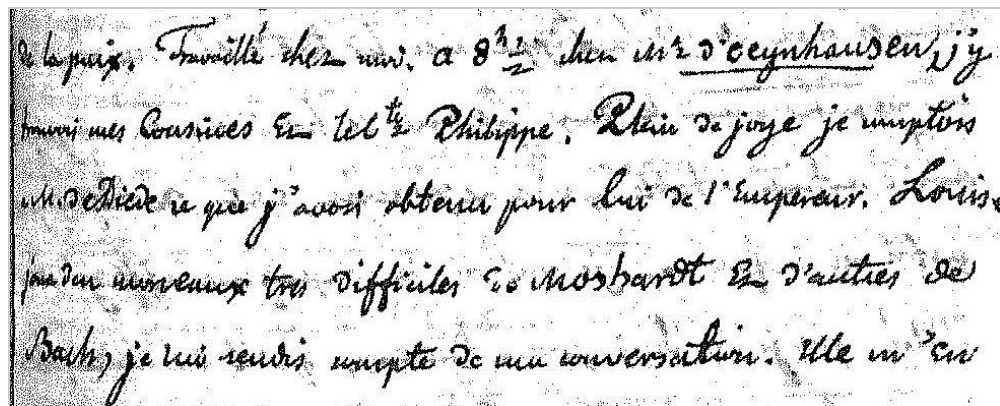 de la paix. Travaillé chez moi. a 8h 1/2 chez Mr d'oeynhausen, j'y
trouvai mes Cousines Et lel Philippe. Plein de joye je comptois
M. de Diede ce que j'avois obtenu pour lui de l'Empereur. Louise
joua des morceaux tres difficiles de Moshardt Et d'autres de
Bach, je lui rendis compte de ma conversation. Elle m'en